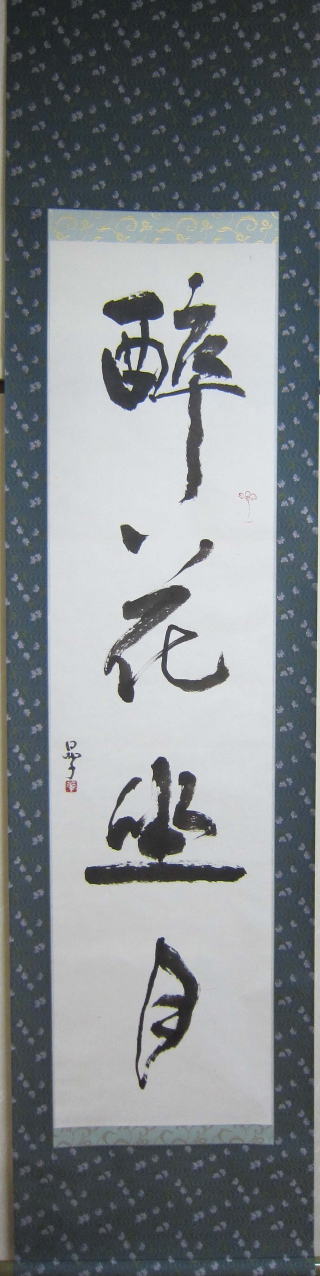 醉花坐月